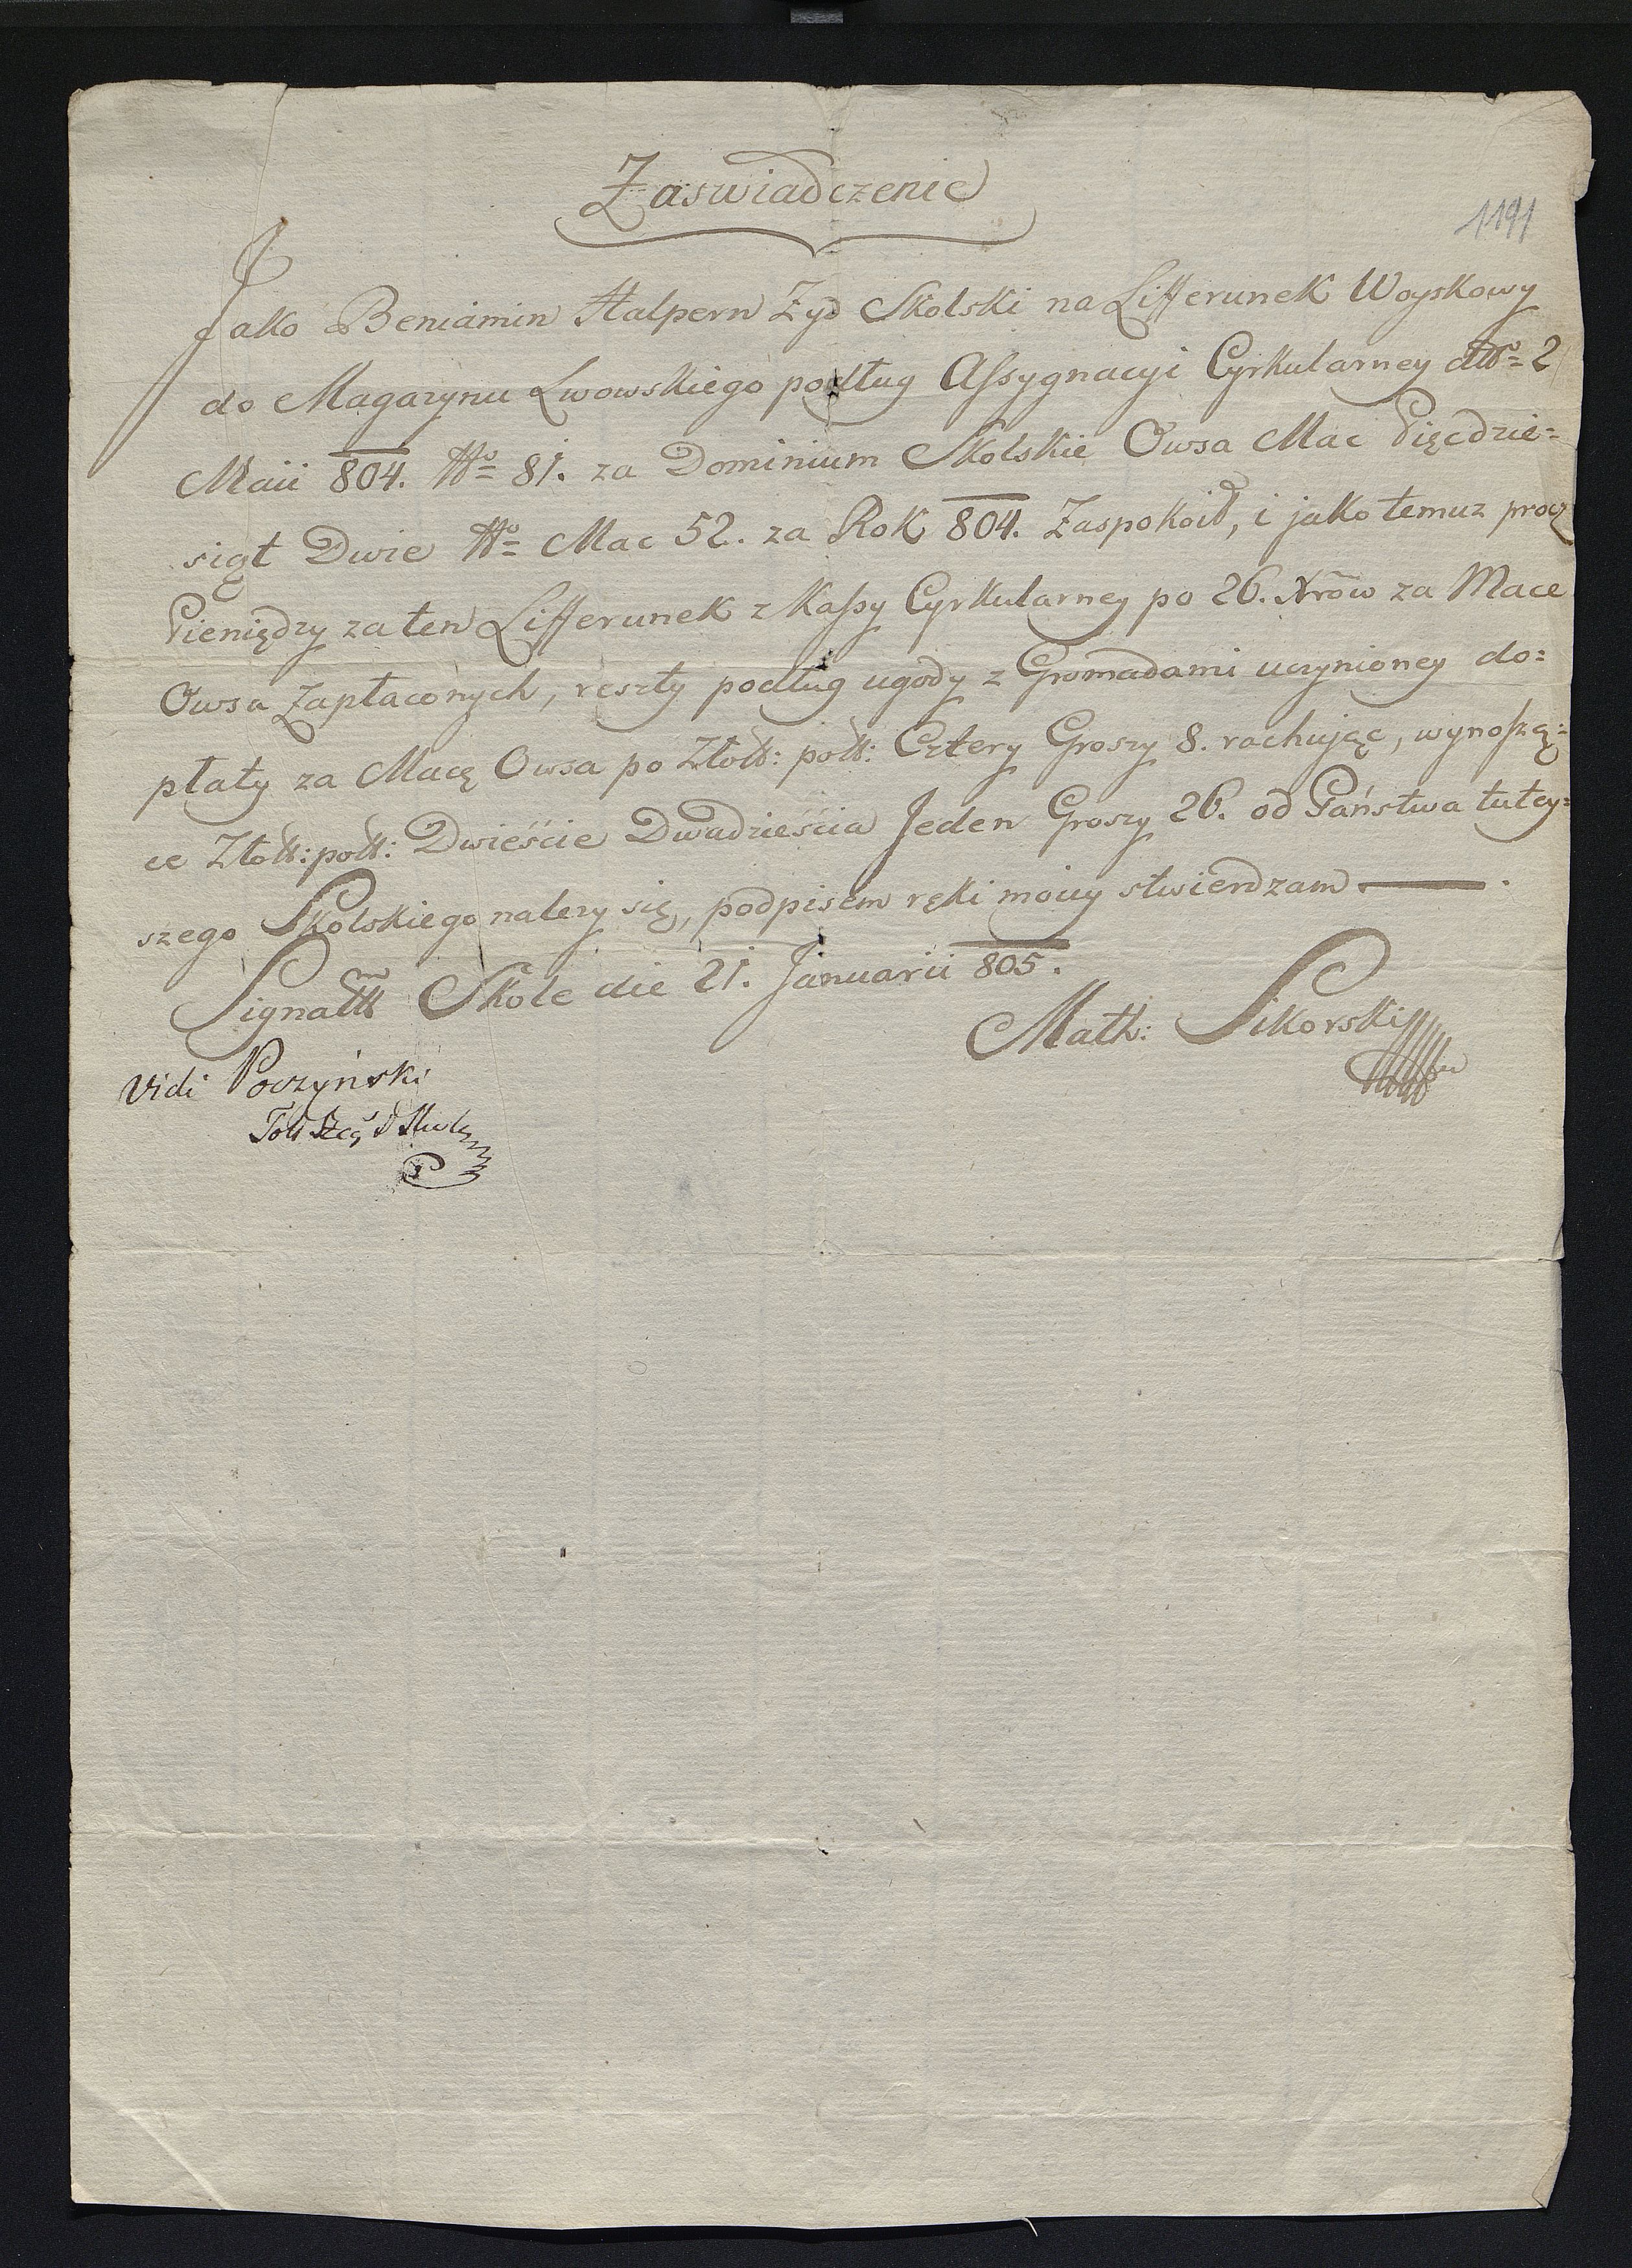 Zaswiadczenie
1191
Jako Beniamin Halpern Zyd Skolski na Lifferunek Woyskowy
do Magazynu Lwowskiego podług Assygnacyi Cyrkularney dtto 2
Maii 804. Nro 81. za Dominium Skolskie Owsa Mac Pięcdzie=
siąt Dwie Nro Mac 52. za Rok 804. Zaspokoił, i jako temuz procz
Pieniędzy za ten Lifferunek z Kassy Cyrkularney po 26. Xrow za Mace
Owsa Zapłaconych, reszty podług ugody z Gromadami uczynioney do=
płaty za Macę Owsa po Złott: poll: Cztery Groszy 8. rachując, wynoszą=
ce Złott: poll: Dwieście Dwadzieścia Jeden Groszy 26. od Państwa tutey=
szego Skolskiego nalezy się, podpisem ręki moiey stwierdzam
Signatt Skole die 21. Januarii 805.
Math: Sikorski
Vidi Poczyński